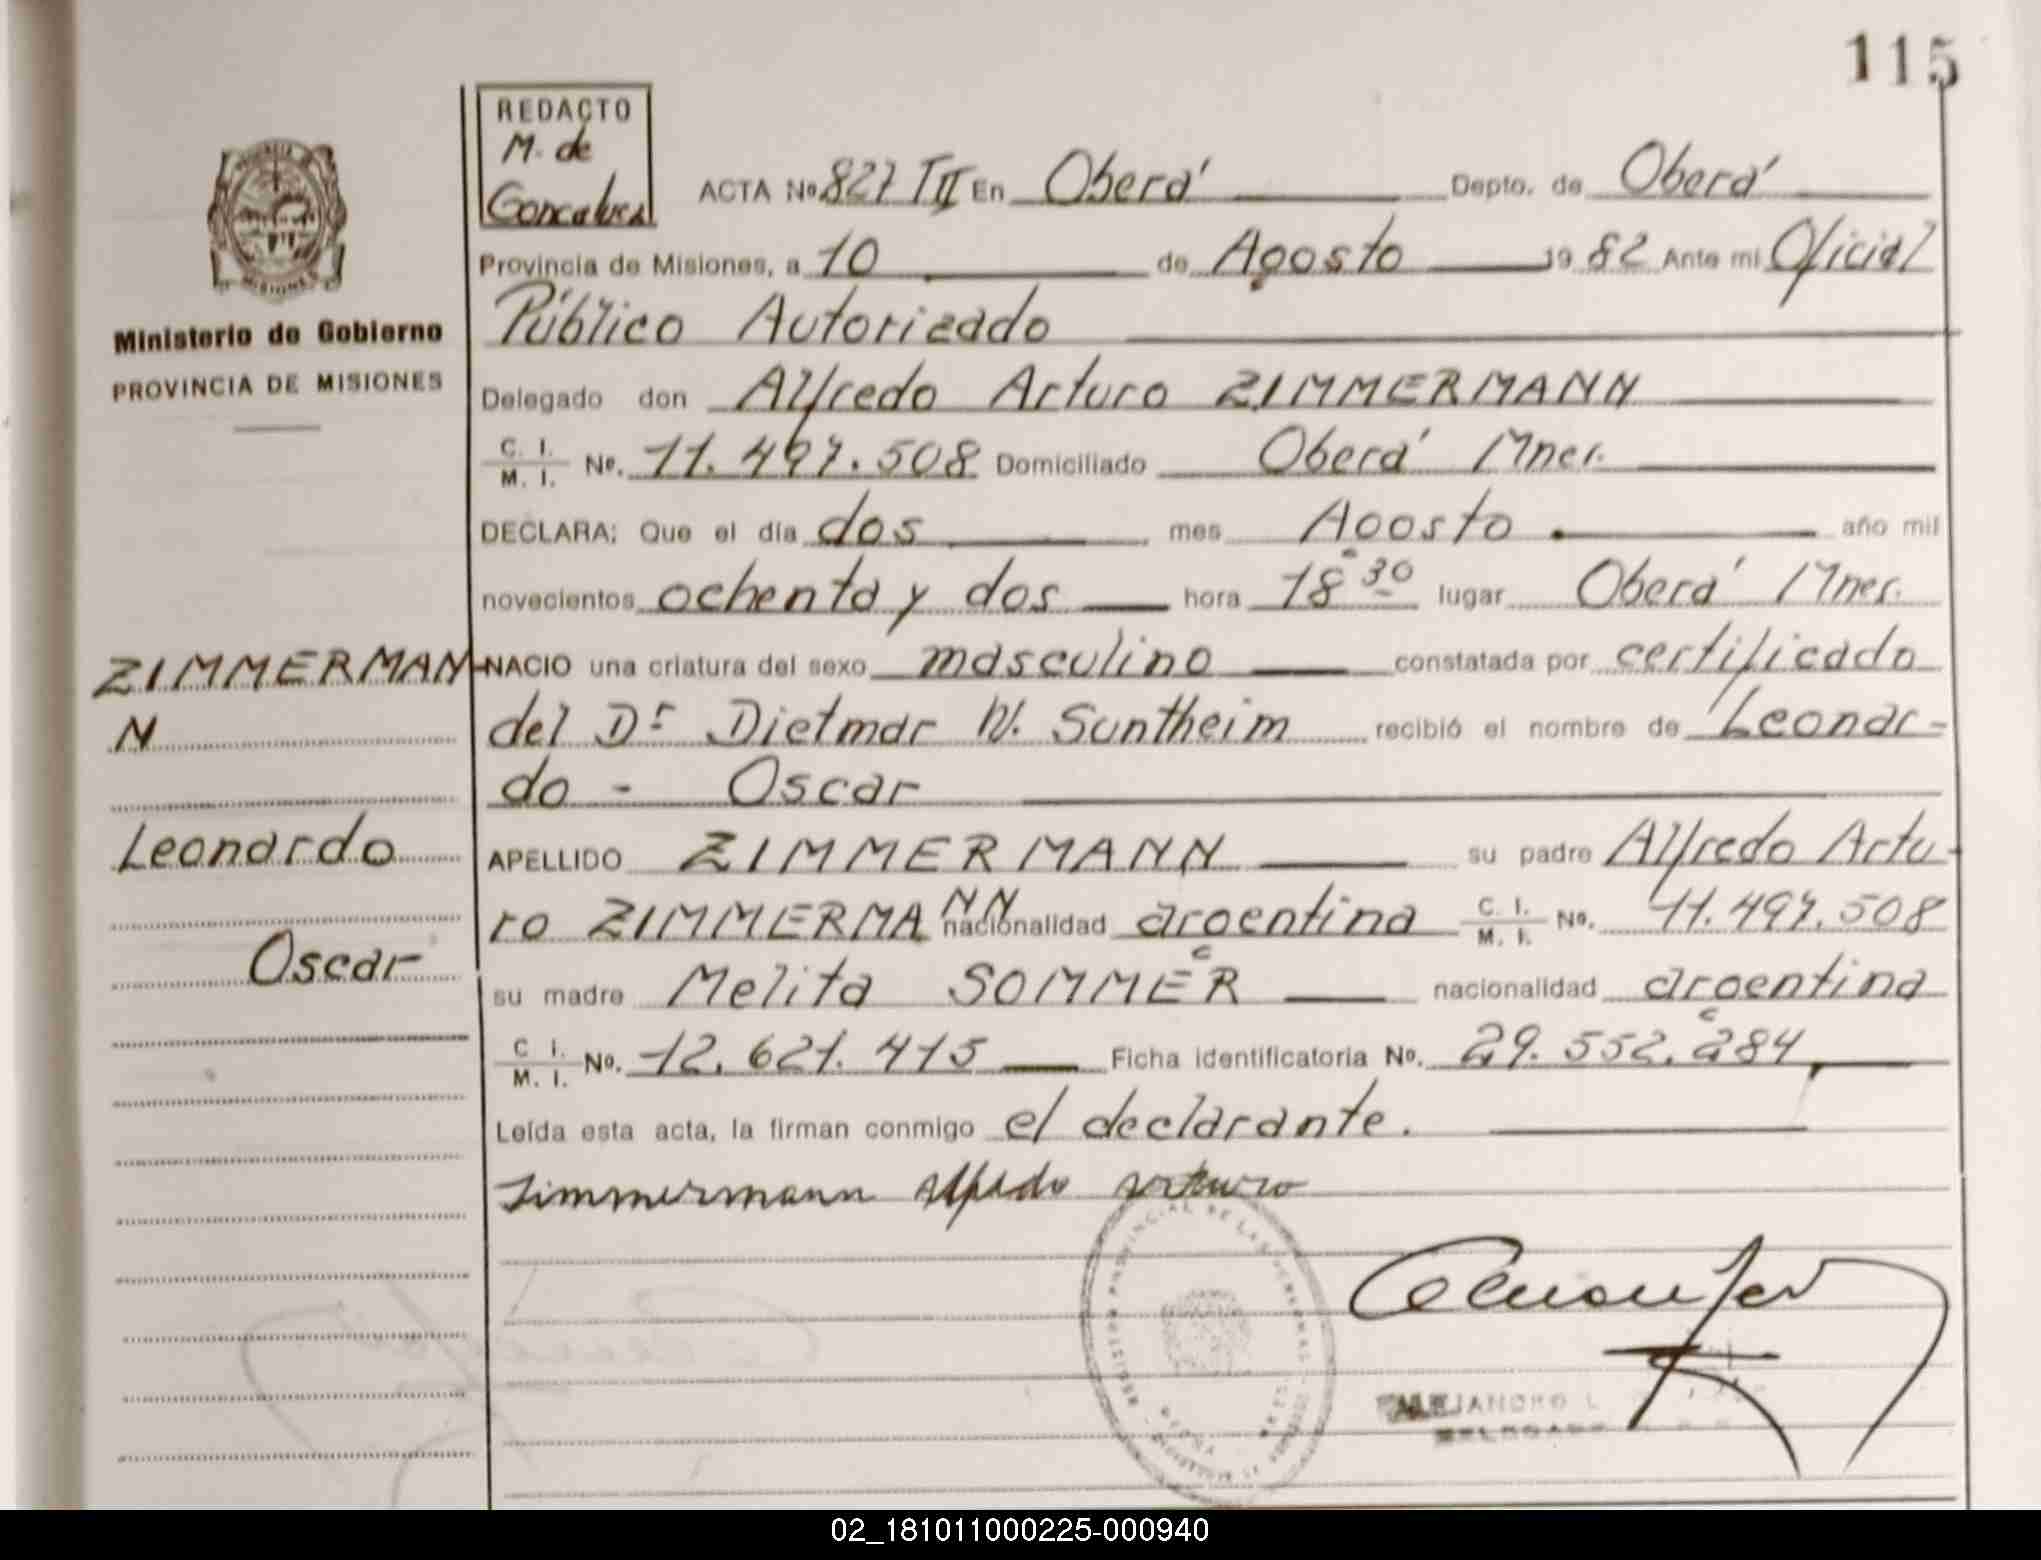 115
REDACTO
M. de
Goncalves
ACTA Nº 827 TII En Oberá Depto. de Oberá
Provincia de Misiones, a 10 de Agosto 1982 Ante mi Oficial
Público Autorizado
Ministerio de Gobierno
PROVINCIA DE MISIONES
Delegado don Alfredo Arturo ZIMMERMANN
C. I. / M. I. Nº. 11.497.508 Domiciliado Oberá Mnes.
DECLARA: Que el día dos mes Agosto año mil
novecientos ochenta y dos hora 18 30 lugar Oberá Mnes.
NACIO una criatura del sexo masculino constatada por certificado
del Dr Dietmar W. Suntheim recibió el nombre de Leonar-
do - Oscar
ZIMMERMAN
N
Leonardo
Oscar
APELLIDO ZIMMERMANN su padre Alfredo Artu-
ro ZIMMERMANN nacionalidad argentina C. I. / M. I. Nº. 11.497.508
su madre Melita SOMMER nacionalidad argentina
C. I. / M. I. Nº. 12.621.415 Ficha identificatoria Nº. 29.552.284
Leída esta acta, la firman conmigo el declarante.
Zimmermann Alfredo Arturo
REGISTRO PROVINCIAL DE LAS PERSONAS
ALEJANDRO
DELEGADO
02_181011000225-000940